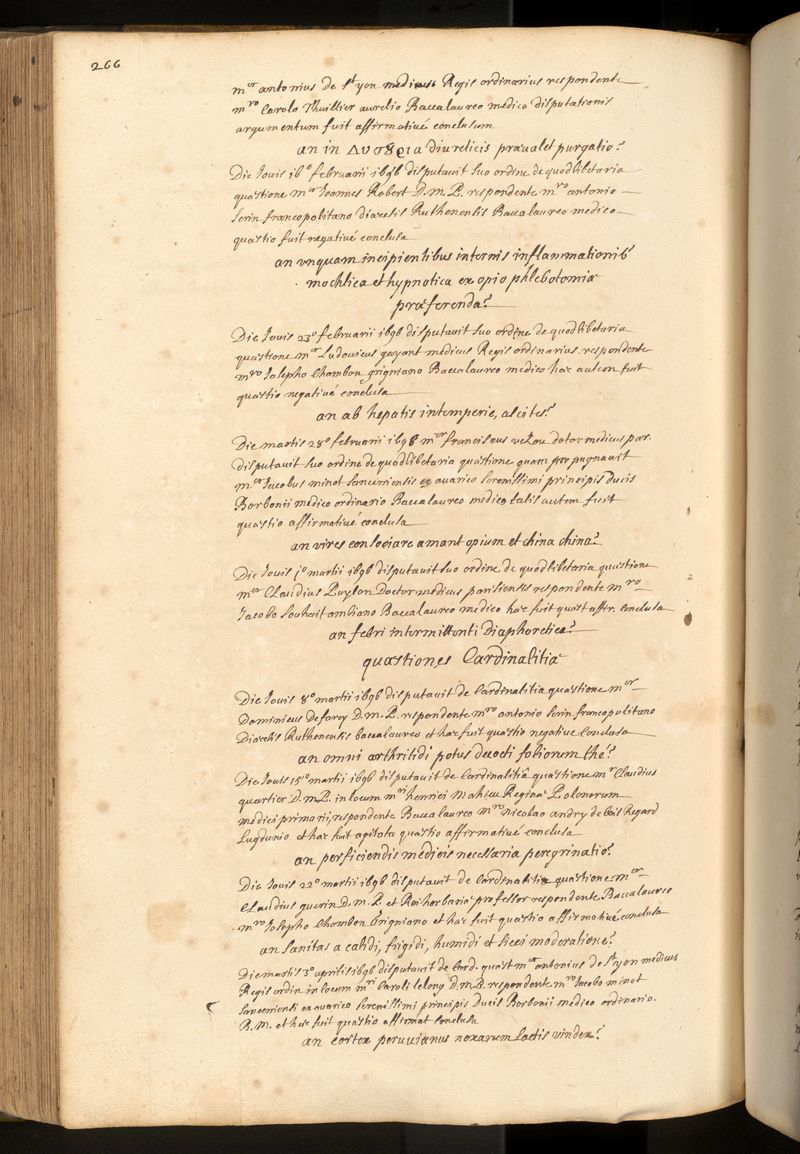 266
mer antonius de St yon medicus Regis ordinarius respondente
mro Carolo Thuillier aurelio Baccalaureo medico disputationis
argumentum fuit affirmativé conclusum
an in Δυσȣρια diureticis prævalet purgatio?
Die Jovis 16° februarii 1696 disputavit suo ordine de quodlibetaria
quæstione mer Joannes Robert D. m. P. respondente mro antonio
serin francopolitano diæcesis Ruthenensis Baccalaureo medico
quæstio fuit negativé conclusa
an vnquam incipientibus internis inflammationib9
mochlica et hypnotica ex opio phlebotomiæ
præferenda?
Die Jovis 23° februarii 1696 disputavit suo ordine de quodlibetaria
quæstione mer Ludovicus gayant medicus Regis ordinarius respondente
mro Josepho Chambon grigniano Baccalaureo medico hæc autem fuit
quæstio negativé conclusa
an ab hepatis intemperie, ascites?
Die martis 28° februarii 1696 mer franciscus vezou doctor medicus par.
disputavit suo ordine de quodlibetaria quæstione quam propugnavit
mer Jacobus minot sancerrensis ex avarico serenissimi principis Ducis
Borbonii medico ordinario Baccalaureo medico talis autem fuit
quæstio affirmativé conclusa
an vires consociare amant opium et china china?
Die Jovis 1° martii 1696 disputavit suo ordine de quodlibetaria quæstione
mer Claudius Puylon Doctor medicus parisiensis respondente mro
Jacobo Souhait ambiano Baccalaureo medico hæc fuit quæst affir. conclusa
an febri intermittenti Diaphoretica?
quæstiones Cardinalitiæ
Die Jovis 8° martii 1696 disputavit de Cardinalitia quæstione mer
Dominicus Defarcy D. m. P. respondente mro antonio serin francopolitano
Diæcesis Ruthenensis baccalaureo et hæc fuit quæstio negative conclusa
an omni arthritidi potus decocti foliorum thé?
Die Jovis 15° martii 1696 disputavit de Cardinalitiâ quæstione mr Claudius
quartier D. m. P. in locum mri henrici Mahieu Reginæ Polonorum
medici primarii, respondente Baccalaureo mro Nicolao andry de bois Regard
Lugduno et hæc fuit agitata quæstio affirmativé conclusa
an perficiendis medicis necessaria peregrinatio?
Die Jovis 22° martii 1696 disputavit de Cardinalitia quæstione mer
Claudius guerin D. m. P. et Rei herbariæ professor respondente Baccalaureo
mro Josepho Chambon Grigniano et hæc fuit quæstio affirmativé conclusa
an sanitas a calidi, frigidi, humidi et sicci moderatione?
Die martis 3° aprilis 1696 disputavit de Card. quæst mer antonius de St yon medicus
Regis ordin in locum mri Caroli lelong D. m. P. respondente mro Jacobo minot
sancerrensi ex avarico serenissimi principis Ducis Borbonii medico ordinario.
B. M. et hæc fuit quæstio affirmat conclusa
an cortex peruvianus noxarum lactis vindex?